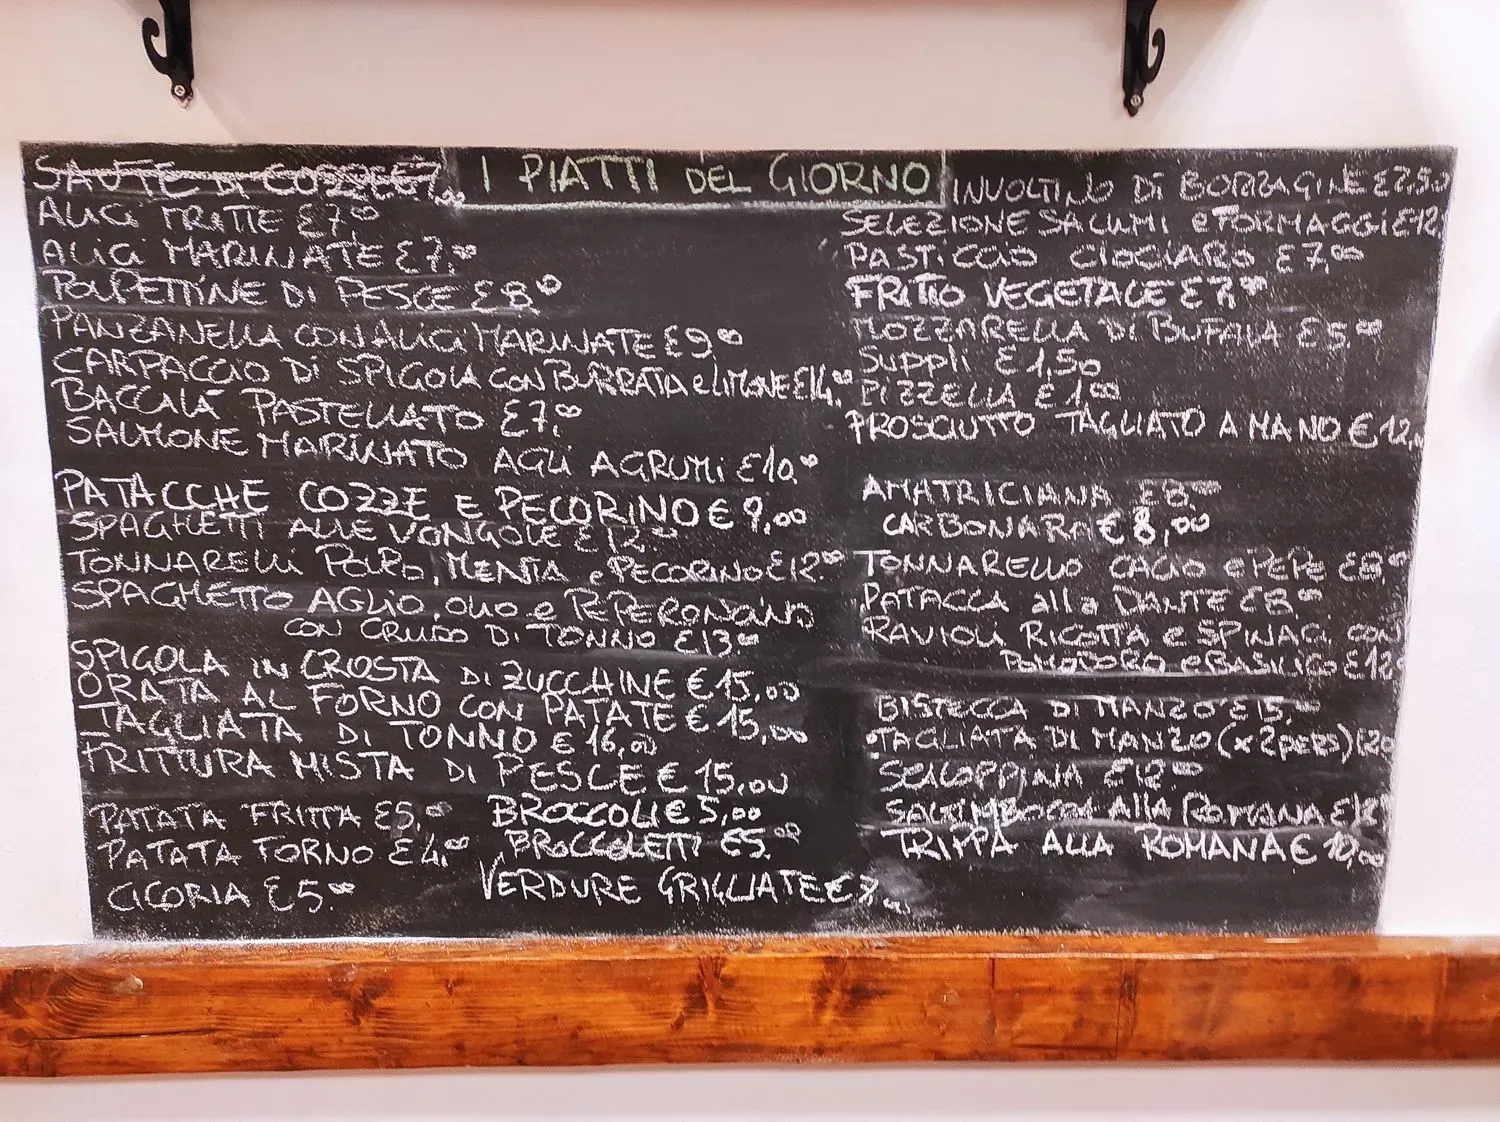 I PIATTI DEL GIORNO
SAUTE DI COZZE £7,00
ALICI FRITTE £7,00
ALICI MARINATE £7,00
POLPETTINE DI PESCE £8,00
PANZANELLA CON ALICI MARINATE £9,00
CARPACCIO DI SPIGOLA CON BURRATA e LIMONE £14,00
BACCALA' PASTELLATO £7,00
SALMONE MARINATO AGLI AGRUMI £10,00
PATACCHE COZZE E PECORINO € 9,00
SPAGHETTI ALLE VONGOLE £12,00
TONNARELLI POLPO, MENTA e PECORINO £12,00
SPAGHETTO AGLIO, OLIO e PEPERONCINO
CON CRUDO DI TONNO £13,00
SPIGOLA IN CROSTA DI ZUCCHINE € 15,00
ORATA AL FORNO CON PATATE € 15,00
TAGLIATA DI TONNO € 16,00
FRITTURA MISTA DI PESCE € 15,00
PATATA FRITTA £5,00
PATATA FORNO £4,00
CICORIA £5,00
BROCCOLI € 5,00
BROCCOLETTI £5,00
VERDURE GRIGLIATE €
INVOLTINO DI BORRAGINE £2,50
SELEZIONE SALUMI e FORMAGGI £12,
PASTICCIO CIOCIARO £7,00
FRITTO VEGETALE £7,00
MOZZARELLA DI BUFALA £5,00
Supplì £1,50
PIZZELLA £1,00
PROSCIUTTO TAGLIATO A MANO € 12,
AMATRICIANA £8,00
CARBONARA € 8,00
TONNARELLO CACIO e PEPE £8,00
PATACCA alla DANTE £8,00
RAVIOLI RICOTTA e SPINACI CON
POMODORO e BASILICO £12
BISTECCA DI MANZO £15,00
TAGLIATA DI MANZO (x 2 pers)
SCALOPPINA £12,00
SALTIMBOCCA Alla ROMANA
TRIPPA ALLA ROMANA € 10,00